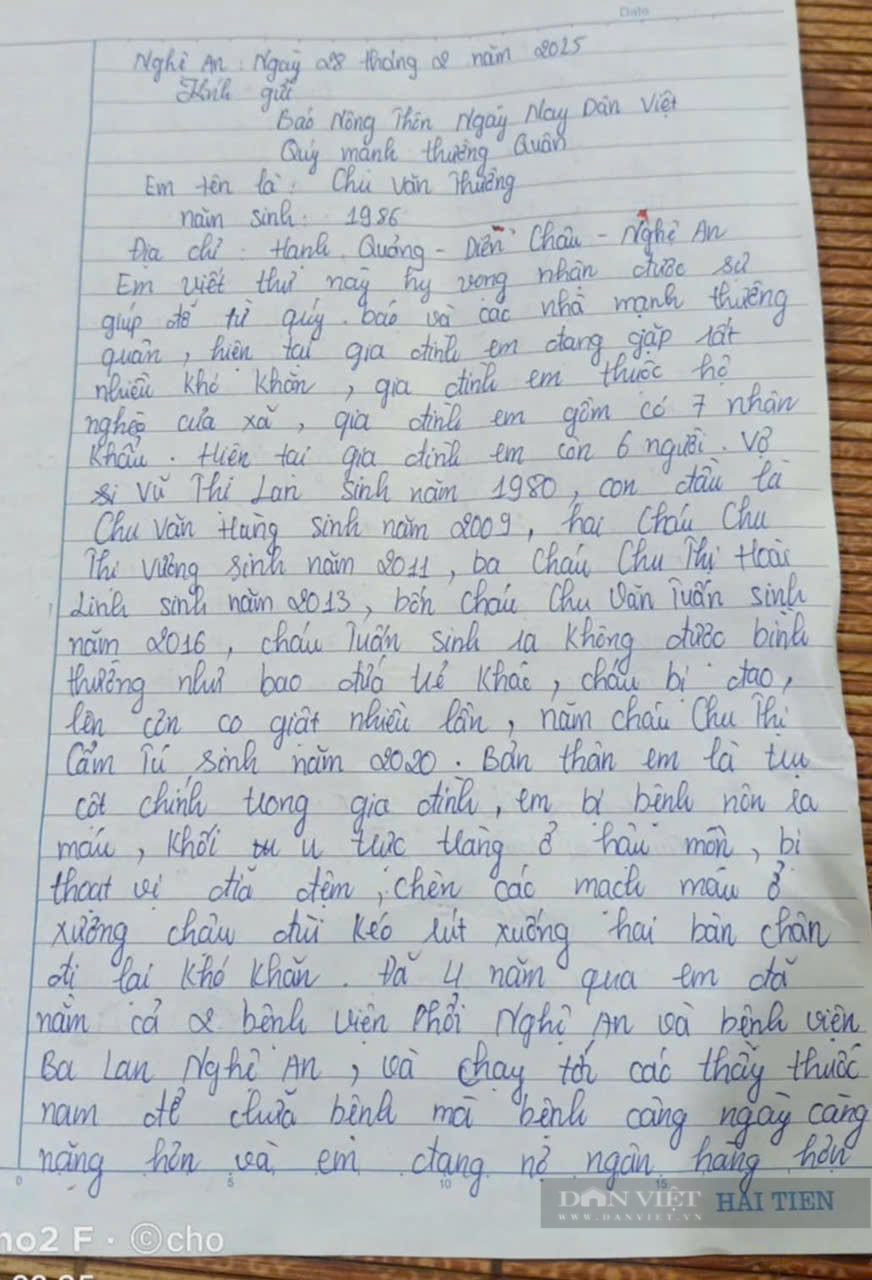 Date
Nghệ An: Ngày 28 tháng 2 năm 2025
Kính gửi
Báo Nông Thôn Ngày Nay Dân Việt
Quý mạnh thường Quân
Em tên là: Chu Văn Thường
năm sinh: 1986
Địa chỉ: Hạnh Quảng - Diễn Châu - Nghệ An
Em viết thư này hy vọng nhận được sự
giúp đỡ từ quý báo và các nhà mạnh thường
quân, hiện tại gia đình em đang gặp rất
nhiều khó khăn, gia đình em thuộc hộ
nghèo của xã, gia đình em gồm có 7 nhân
khẩu. Hiện tại gia đình em còn 6 người. Vợ
Vũ Thị Lan sinh năm 1980, con đầu là
Chu Văn Hùng sinh năm 2009, hai Cháu Chu
Thị Vương sinh năm 2011, ba Cháu Chu Thị Hoài
Linh sinh năm 2013, bốn cháu Chu Văn Tuấn sinh
năm 2016, cháu Tuấn sinh ra không được bình
thường như bao đứa trẻ khác, cháu bị đao,
lên cơn co giật nhiều lần, năm cháu Chu Thị
Cẩm Tú sinh năm 2020. Bản thân em là trụ
cột chính trong gia đình, em bị bệnh nôn ra
máu, khối u trực tràng ở hậu môn, bị
thoát vị đĩa đệm, chèn các mạch máu ở
xương chậu đùi kéo rút xuống hai bàn chân
đi lại khó khăn. Đã 4 năm qua em đã
nằm cả 2 bệnh viện Phổi Nghệ An và bệnh viện
Ba Lan Nghệ An, và chạy tới các thầy thuốc
nam để chữa bệnh mà bệnh càng ngày càng
nặng hơn và em đang nợ ngân hàng hơn
0 5 10 15
DÂN VIỆT
WWW.DANVIET.VN
HẢI TIẾN
no2 F · ©cho